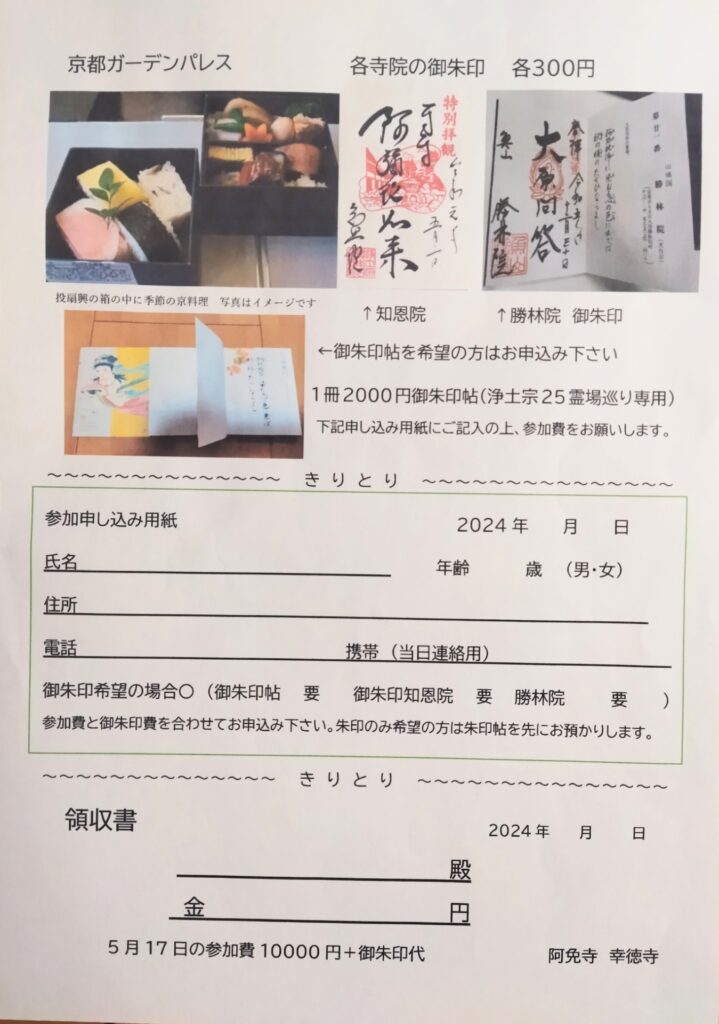 京都ガーデンパレス
各寺院の御朱印　各300円
特別拝観
阿彌陀如来
奉拝 令和
大原問答
勝林院
第廿一番 勝林院
投扇興の箱の中に季節の京料理　写真はイメージです
↑知恩院
↑勝林院 御朱印
←御朱印帖を希望の方はお申込み下さい
1冊2000円御朱印帖(浄土宗25霊場巡り専用)
下記申し込み用紙にご記入の上、参加費をお願いします。
～～～～～～～～～～～～～～ きりとり ～～～～～～～～～～～～～～～
参加申し込み用紙　2024年　月　日
氏名　年齢　歳　(男・女)
住所
電話　携帯（当日連絡用）
御朱印希望の場合〇（御朱印帖　要　御朱印知恩院　要　勝林院　要　）
参加費と御朱印費を合わせてお申込み下さい。朱印のみ希望の方は朱印帖を先にお預かりします。
～～～～～～～～～～～～～～ きりとり ～～～～～～～～～～～～～～～
領収書　2024年　月　日
殿
金　円
5月17日の参加費10000円＋御朱印代　阿免寺　幸徳寺